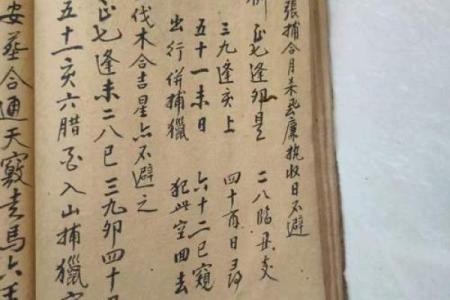 張捕合月未逢廉執收日不避
正七逢 是 二八臨丑支
三九逢亥上 四十酉日尋
五十一未日 六十二巳窺
出行併捕獵 犯此空回去
伐木合吉星亦不避之
正七逢未二八巳三九卯四十日
五十一亥六腊 入山捕獵
安葬合通天竅走馬六壬